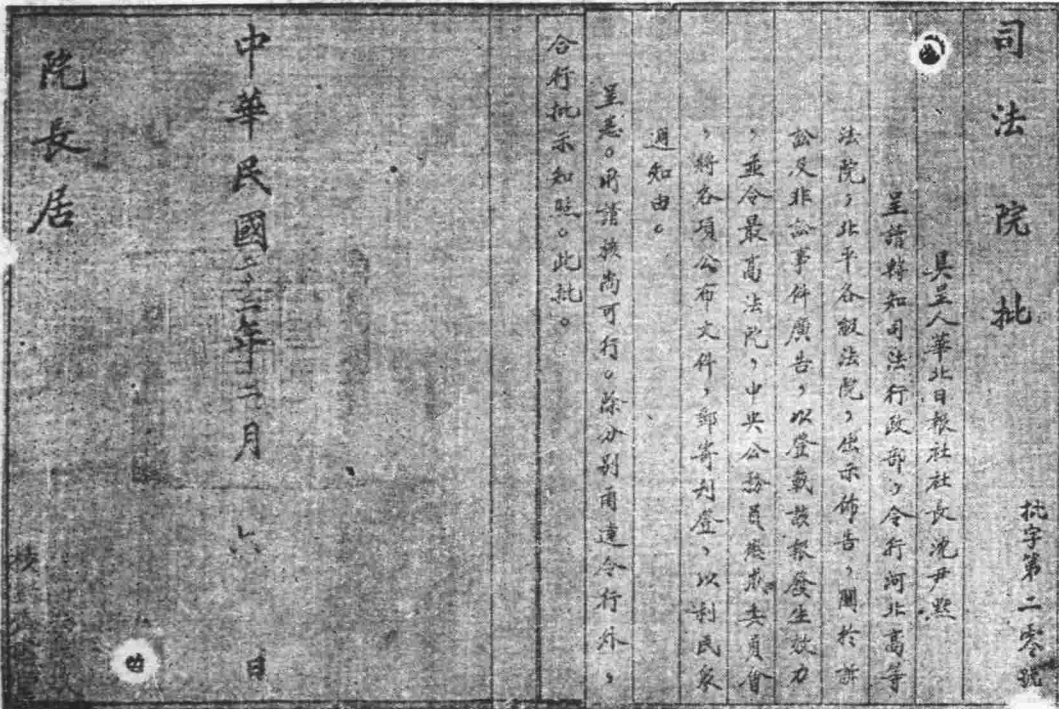 司法院批
批字第二零號
具呈人華北日報社社長沈尹默
呈請轉知司法行政部，令行河北高等
法院，北平各級法院，出示佈告，關於訴
訟及非訟事件廣告，以登載該報發生效力
，並令最高法院，中央公務員懲戒委員會
，將各項公布文件，郵寄刊登，以利民衆
週知由。
呈悉。所請核尚可行。除分別函達令行外，
合行批示知照。此批。
中華民國二十二年二月六日
院長居